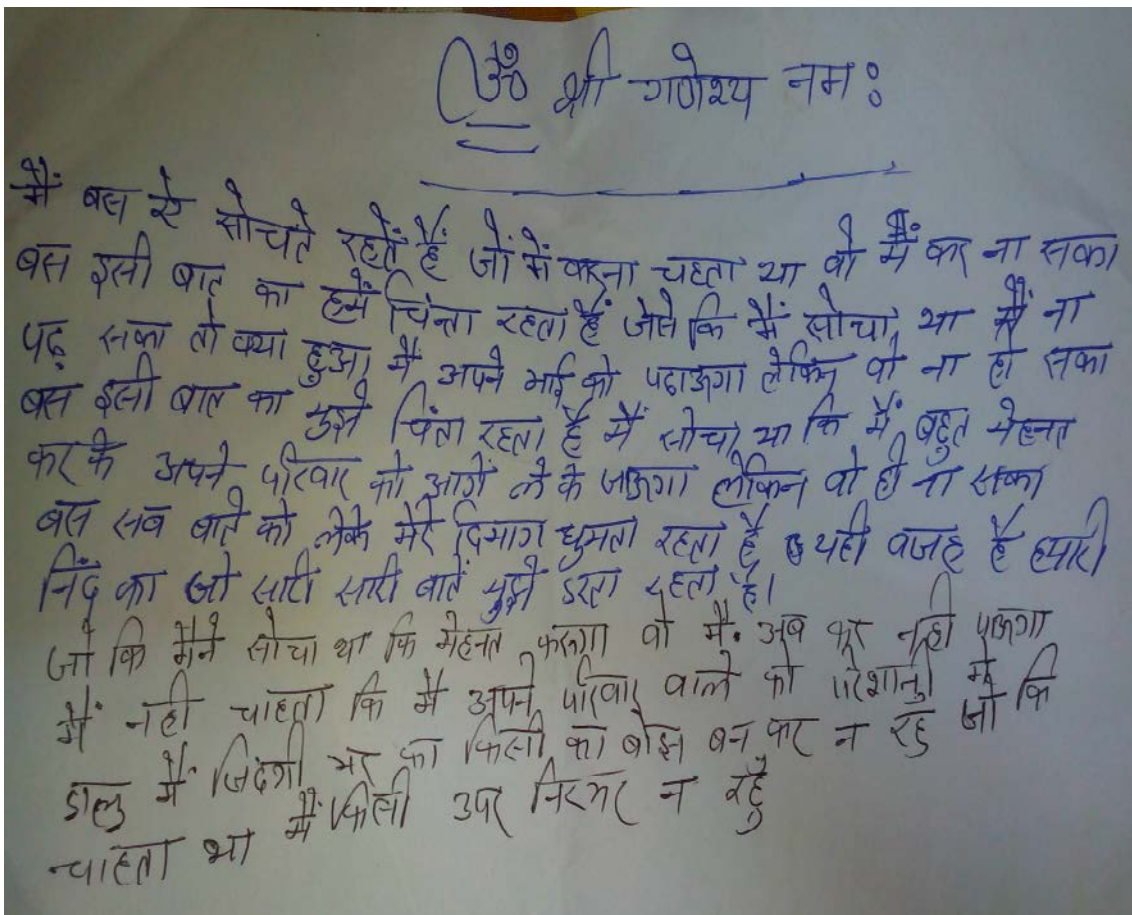 ॐ श्री गणेश्य नमः
मैं बस ऐ सोचते रहतें हैं जों में करना चहता था वो मैं कर ना सका
बस इसी बात का हमें चिंन्ता रहता हैं जेसे कि मैं सोचा था मैं ना
पढ़ सका तो क्या हुआ मै अपने भाई को पढाऊगा लेकिन वो ना हो सका
बस इसी बात का मुझे चिंता रहता है मैं सोचा था कि मैं बहुत मेहनत
कर के अपने परिवार को आगें ले के जाऊगा लेकिन वो हो ना सका
बस सब बाते को लेके मेरे दिमाग घुमता रहता है यही वजह है हमारी
निंद का जो सारी सारी बातें मुझे डरता रहता है।
जो कि मैने सोचा था कि मेहनत करुगा वो मै अब कर नही पाऊगा
मैं नही चाहता कि मै अपने परिवार वाले को परेशानी मे
डालु मैं जिदगी भर का किसी का बोझ बन कर न रहु जो कि
चाहता था मैं किसी उपर निरभर न रहुँ